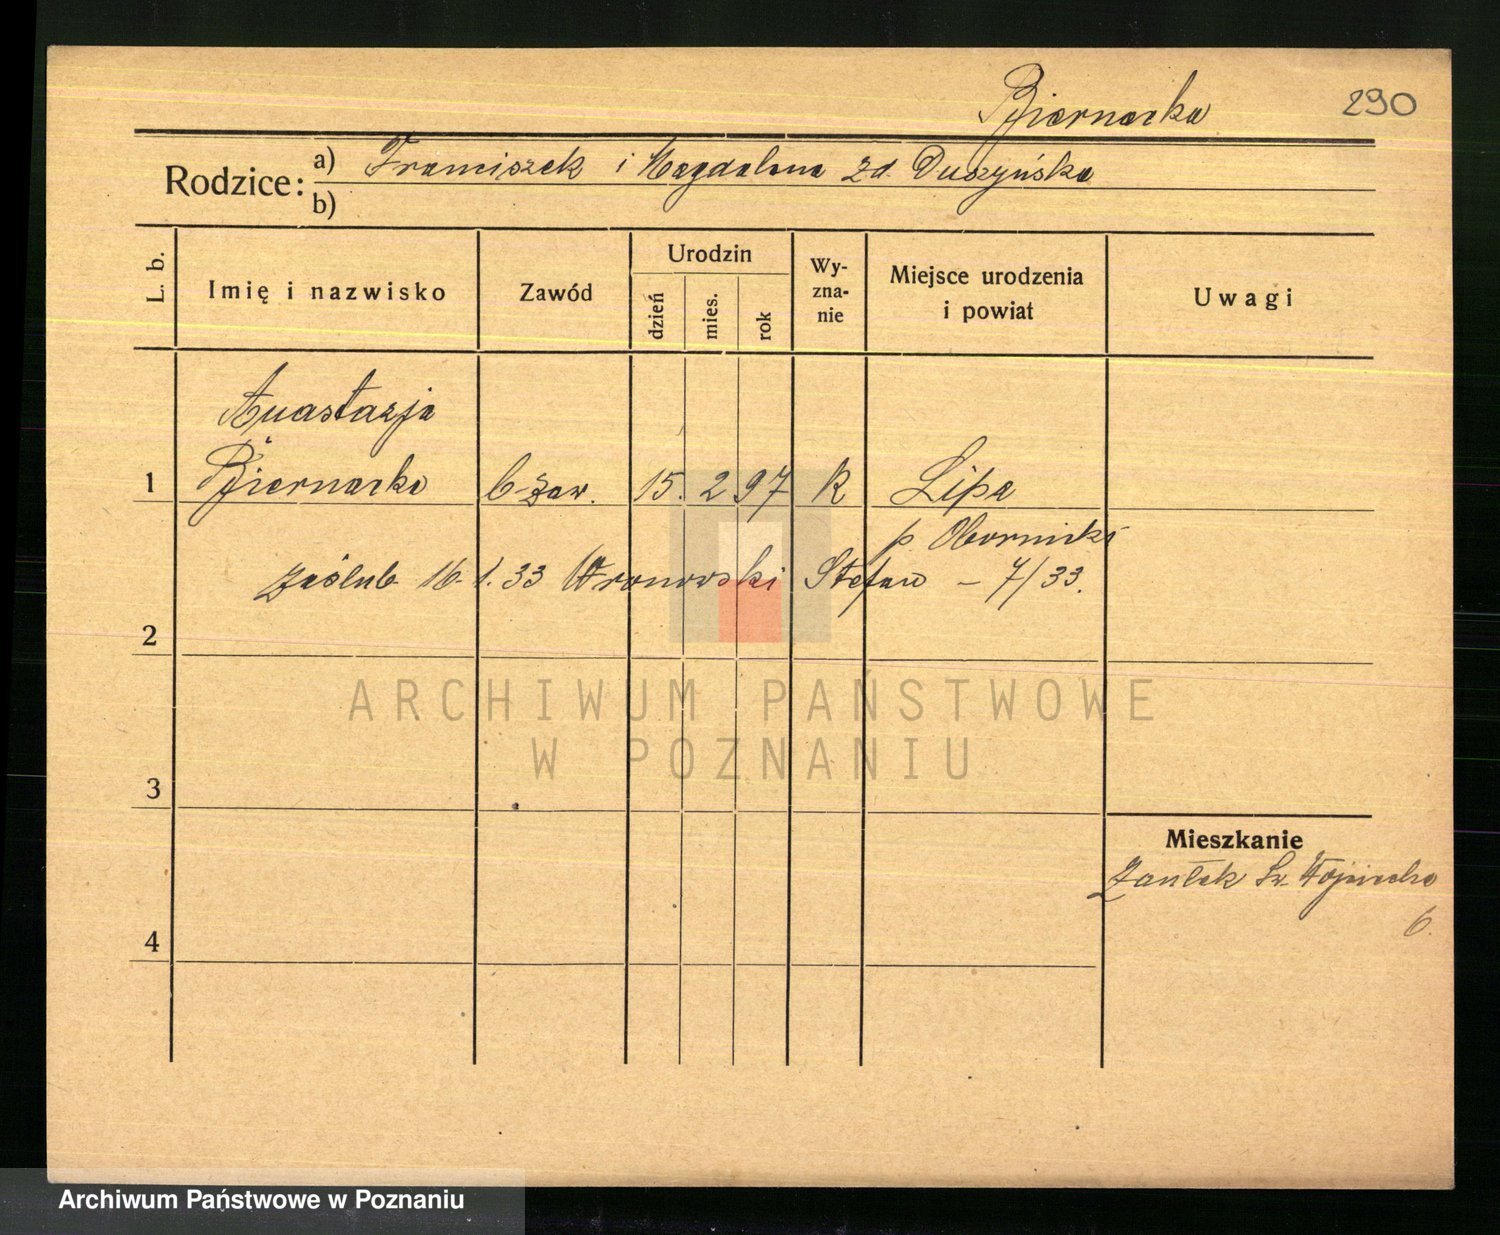 Biernacka 290
Rodzice: a) Franciszek i Magdalena zd. Duszyńska
b)
L. b. Imię i nazwisko Zawód Urodzin dzień mies. rok Wy-zna-nie Miejsce urodzenia i powiat Uwagi
Anastazja
1 Biernacka b. zaw. 15. 2 97 R Lipa
p Oborniki
zaślub. 16 1. 33 Wronowski Stefan – 7/33.
2
ARCHIWUM PAŃSTWOWE
W POZNANIU
3
Mieszkanie
Zaułek Św. Wojciecha
6.
4
Archiwum Państwowe w Poznaniu